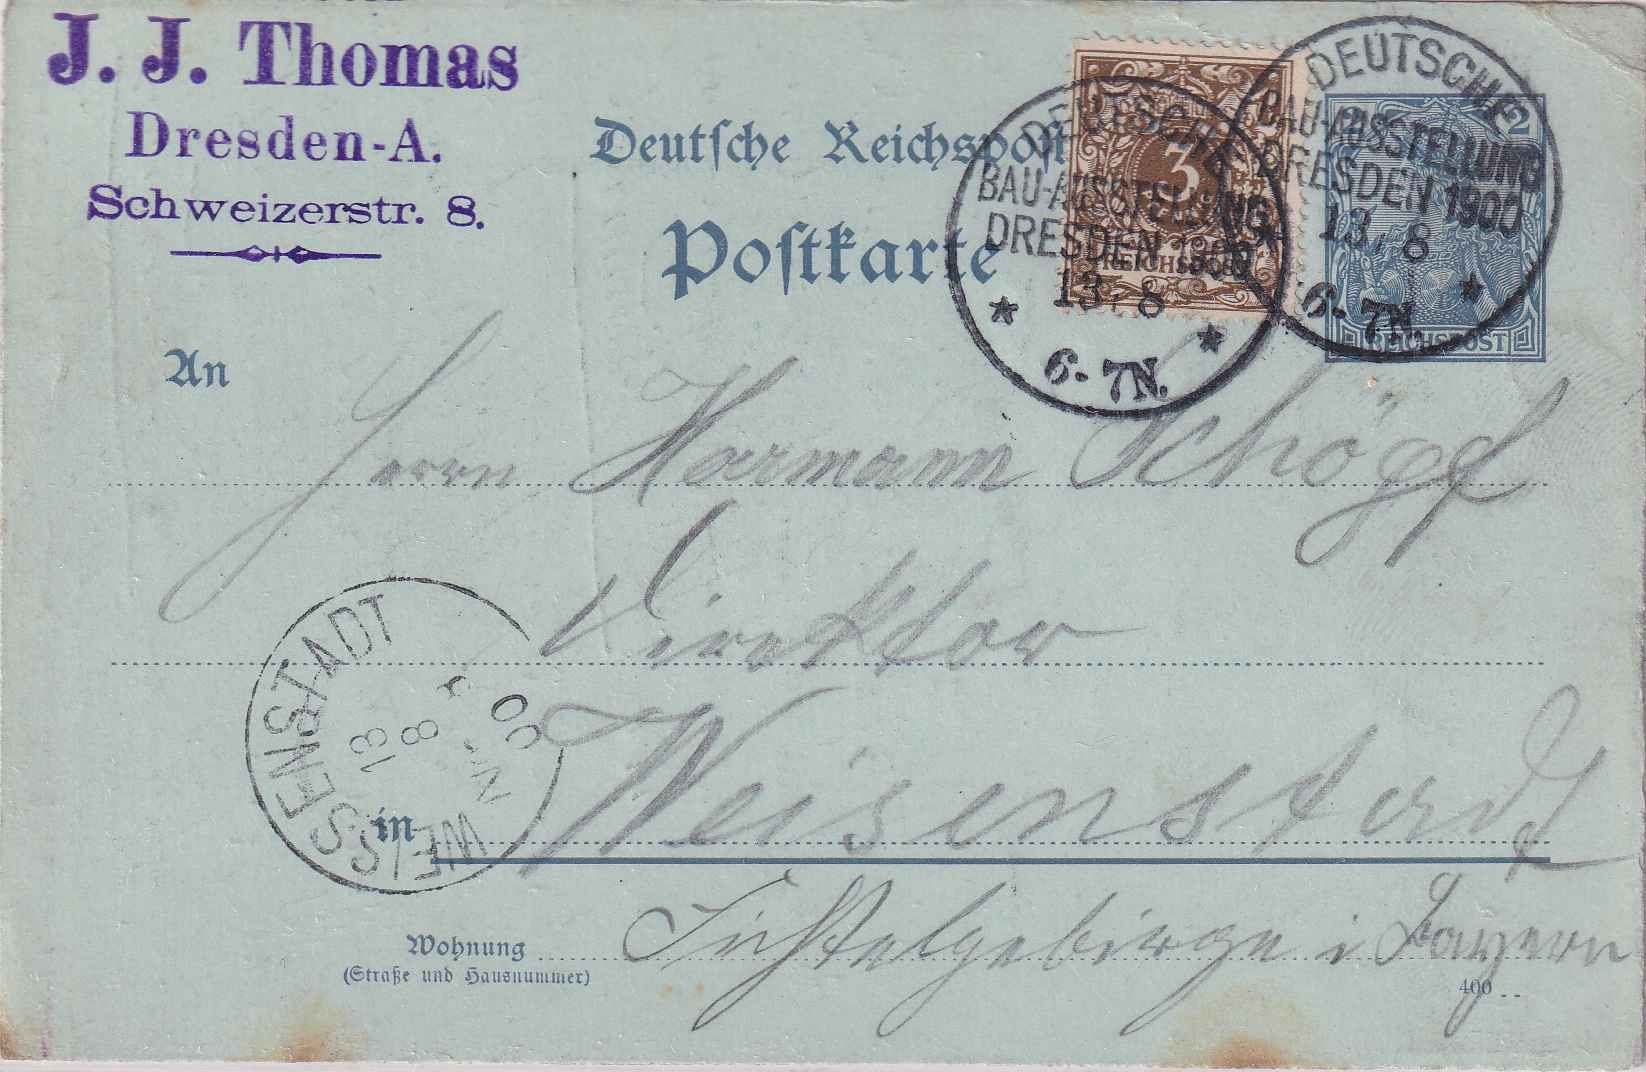 J. J. Thomas
Dresden-A.
Schweizerstr. 8.
Deutsche Reichspost
Postkarte
3
REICHSPOST
2
REICHSPOST
DEUTSCHE
BAU-AUSSTELLUNG
DRESDEN 1900
13. 8
6-7N.
DEUTSCHE
BAU-AUSSTELLUNG
DRESDEN 1900
13. 8
6-7N.
An
Herrn Hermann Schöpf
Direktor
WEISSENSTADT
13
8
00
in Weisenstadt
Wohnung
(Straße und Hausnummer)
Fichtelgebirge i Bayern
400